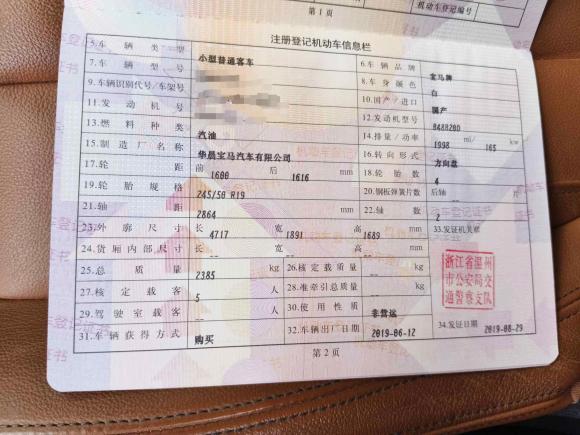 第1页
机动车登记编号
注册登记机动车信息栏
5.车辆类型 小型普通客车 6.车辆品牌 宝马牌
7.车辆型号 8.车身颜色 白
9.车辆识别代号/车架号 10.国产/进口 国产
11.发动机号 12.发动机型号 B48B20D
13.燃料种类 汽油 14.排量/功率 1998 ml/ 165 kw
15.制造厂名称 华晨宝马汽车有限公司 16.转向形式 方向盘
17.轮距 前 1600 后 1616 mm 18.轮胎数 4
19.轮胎规格 245/50 R19 20.钢板弹簧片数 后轴 --
21.轴距 2864 mm 22.轴数 2
23.外廓尺寸 长 4717 宽 1891 高 1689 mm 33.发证机关章
24.货厢内部尺寸 长 -- 宽 -- 高 -- mm
浙江省温州
市公安局交
通警察支队
25.总质量 2385 kg 26.核定载质量 -- kg
27.核定载客 5 人 28.准牵引总质量 -- kg
29.驾驶室载客 -- 人 30.使用性质 非营运
31.车辆获得方式 购买 32.车辆出厂日期 2019-06-12 34.发证日期 2019-08-29
第2页